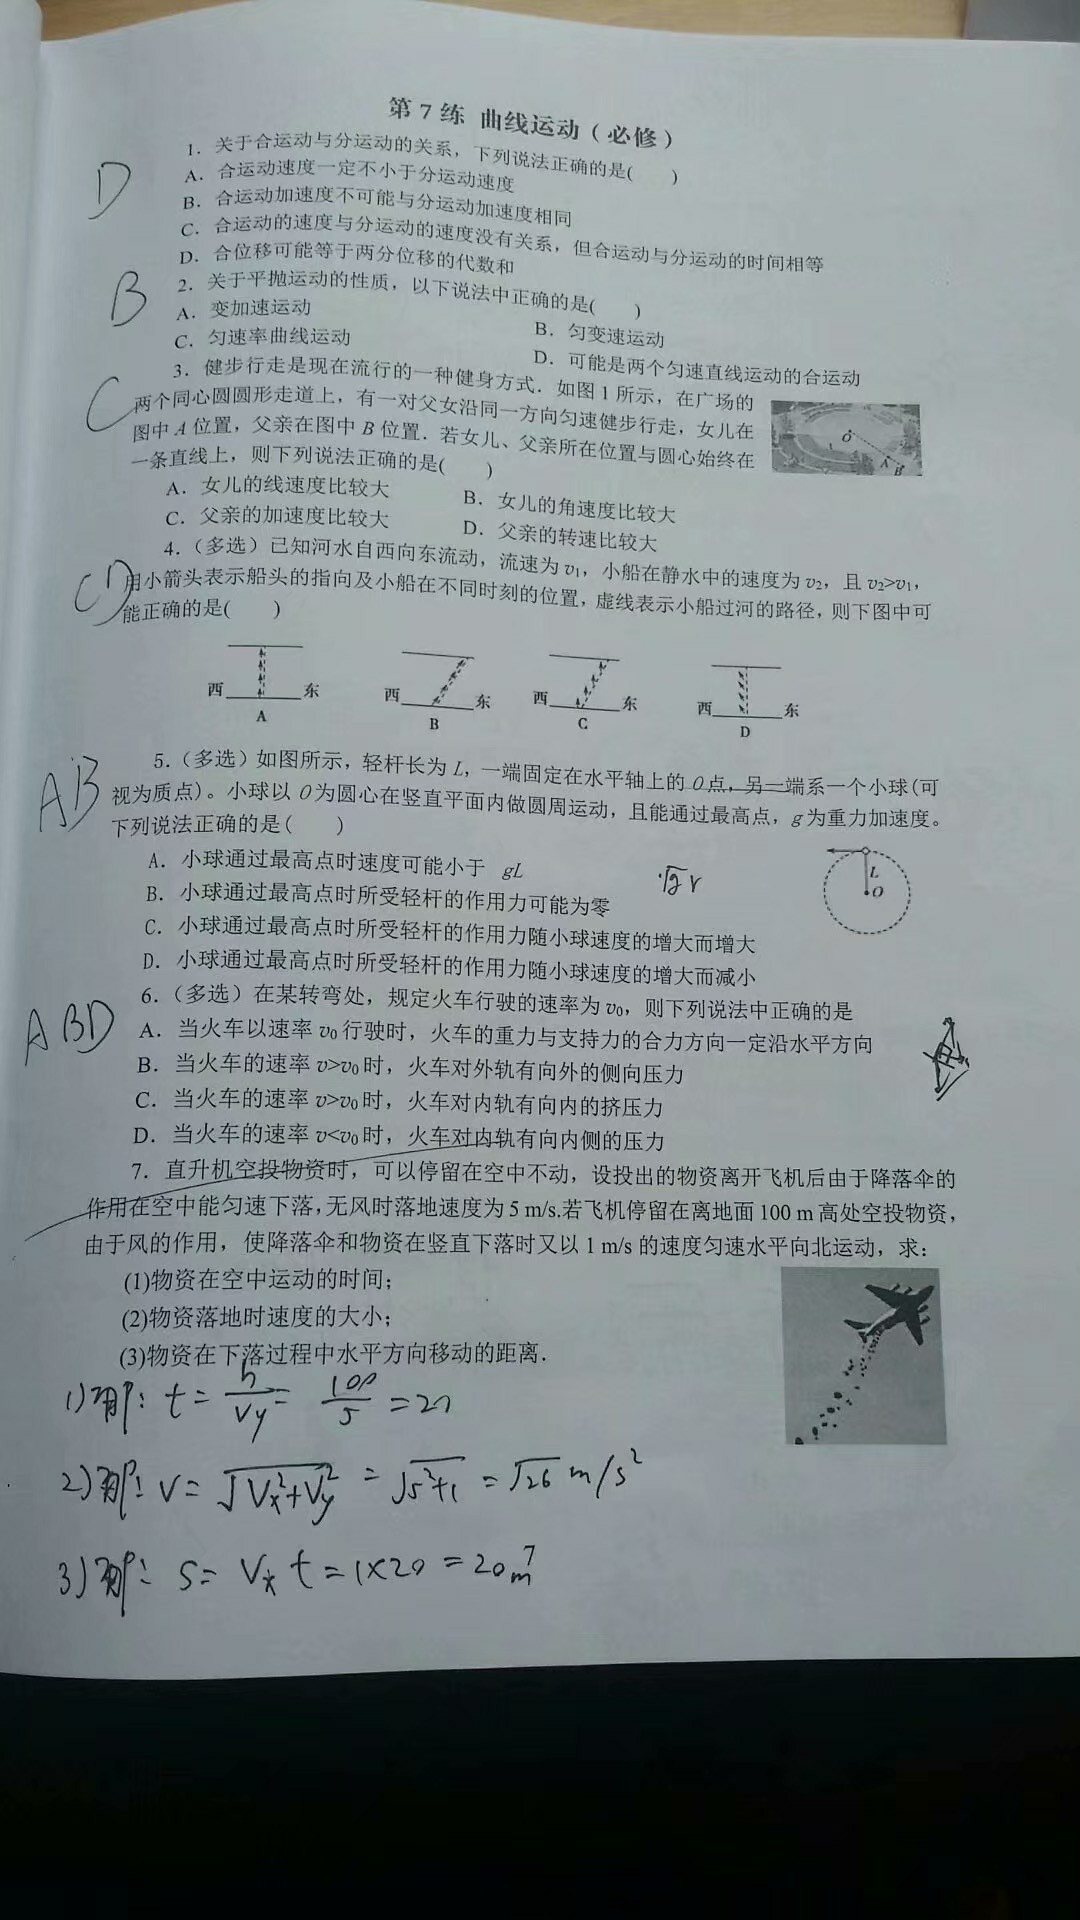 第 7 练 曲线运动（必修）
1．关于合运动与分运动的关系，下列说法正确的是(　　)
D
A．合运动速度一定不小于分运动速度
B．合运动加速度不可能与分运动加速度相同
C．合运动的速度与分运动的速度没有关系，但合运动与分运动的时间相等
D．合位移可能等于两分位移的代数和
B
2．关于平抛运动的性质，以下说法中正确的是(　　)
A．变加速运动
B．匀变速运动
C．匀速率曲线运动
D．可能是两个匀速直线运动的合运动
3．健步行走是现在流行的一种健身方式．如图 1 所示，在广场的
C
两个同心圆圆形走道上，有一对父女沿同一方向匀速健步行走，女儿在
图中 A 位置，父亲在图中 B 位置．若女儿、父亲所在位置与圆心始终在
一条直线上，则下列说法正确的是(　　)
O
A B
A．女儿的线速度比较大
B．女儿的角速度比较大
C．父亲的加速度比较大
D．父亲的转速比较大
4．（多选）已知河水自西向东流动，流速为 v₁，小船在静水中的速度为 v₂，且 v₂>v₁，
CD
用小箭头表示船头的指向及小船在不同时刻的位置，虚线表示小船过河的路径，则下图中可
能正确的是(　　)
西 东 西 东 西 东 西 东
A B C D
AB
5．（多选）如图所示，轻杆长为 L，一端固定在水平轴上的 O 点，另一端系一个小球(可
视为质点)。小球以 O 为圆心在竖直平面内做圆周运动，且能通过最高点，g 为重力加速度。
下列说法正确的是(　　)
A．小球通过最高点时速度可能小于 gL
√gr
L
O
B．小球通过最高点时所受轻杆的作用力可能为零
C．小球通过最高点时所受轻杆的作用力随小球速度的增大而增大
D．小球通过最高点时所受轻杆的作用力随小球速度的增大而减小
ABD
6．（多选）在某转弯处，规定火车行驶的速率为 v₀，则下列说法中正确的是
A．当火车以速率 v₀ 行驶时，火车的重力与支持力的合力方向一定沿水平方向
B．当火车的速率 v>v₀ 时，火车对外轨有向外的侧向压力
C．当火车的速率 v>v₀ 时，火车对内轨有向内的挤压力
D．当火车的速率 v<v₀ 时，火车对内轨有向内侧的压力
7．直升机空投物资时，可以停留在空中不动，设投出的物资离开飞机后由于降落伞的
作用在空中能匀速下落，无风时落地速度为 5 m/s.若飞机停留在离地面 100 m 高处空投物资，
由于风的作用，使降落伞和物资在竖直下落时又以 1 m/s 的速度匀速水平向北运动，求：
(1)物资在空中运动的时间；
(2)物资落地时速度的大小；
(3)物资在下落过程中水平方向移动的距离．
1)解: t = h/Vy = 100/5 = 20
2)解: V = √Vx²+Vy² = √5²+1 = √26 m/s²
3)解: S = Vx t = 1×20 = 20m